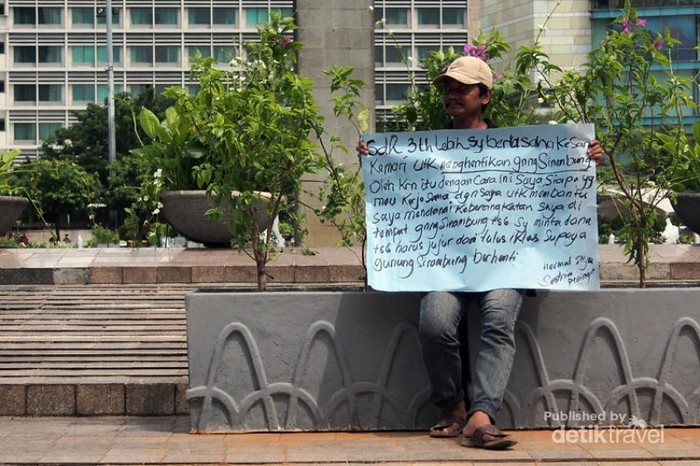 SdR 3 th Lebih sy berusaha kesana
Kemari UTK menghentikan gnng Sinambung
Oleh Krn itu dengan Cara ini Saya Siapa yg
mau Kerja Sama dgn Saya UTK membantu
Saya mendanai Keberangkatan Saya di
tempat gnng Sinambung tsb. Sy minta dana
tsb harus jujur dan tulus iklas Supaya
gunung Sinambung berhenti
hormat Saya
Published by
detiktravel